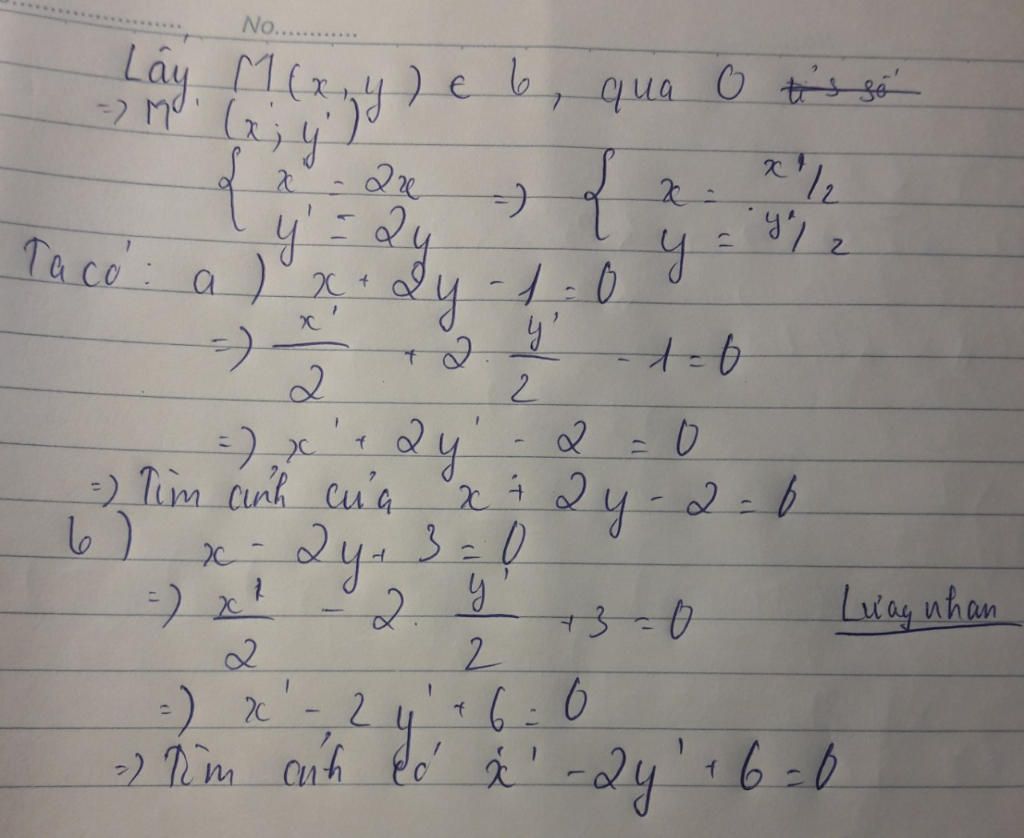 No.............
Lấy M(x,y) ∈ b, qua O
=> M' (x'; y')
{ x' = 2x => { x = x'/2
{ y' = 2y { y = y'/2
Ta có: a) x + 2y - 1 = 0
=> x'/2 + 2. y'/2 - 1 = 0
=> x' + 2y' - 2 = 0
=> Tìm ảnh của x + 2y - 2 = 0
b) x - 2y + 3 = 0
=> x'/2 - 2. y'/2 + 3 = 0
=> x' - 2y' + 6 = 0
=> Tìm ảnh có x' - 2y' + 6 = 0